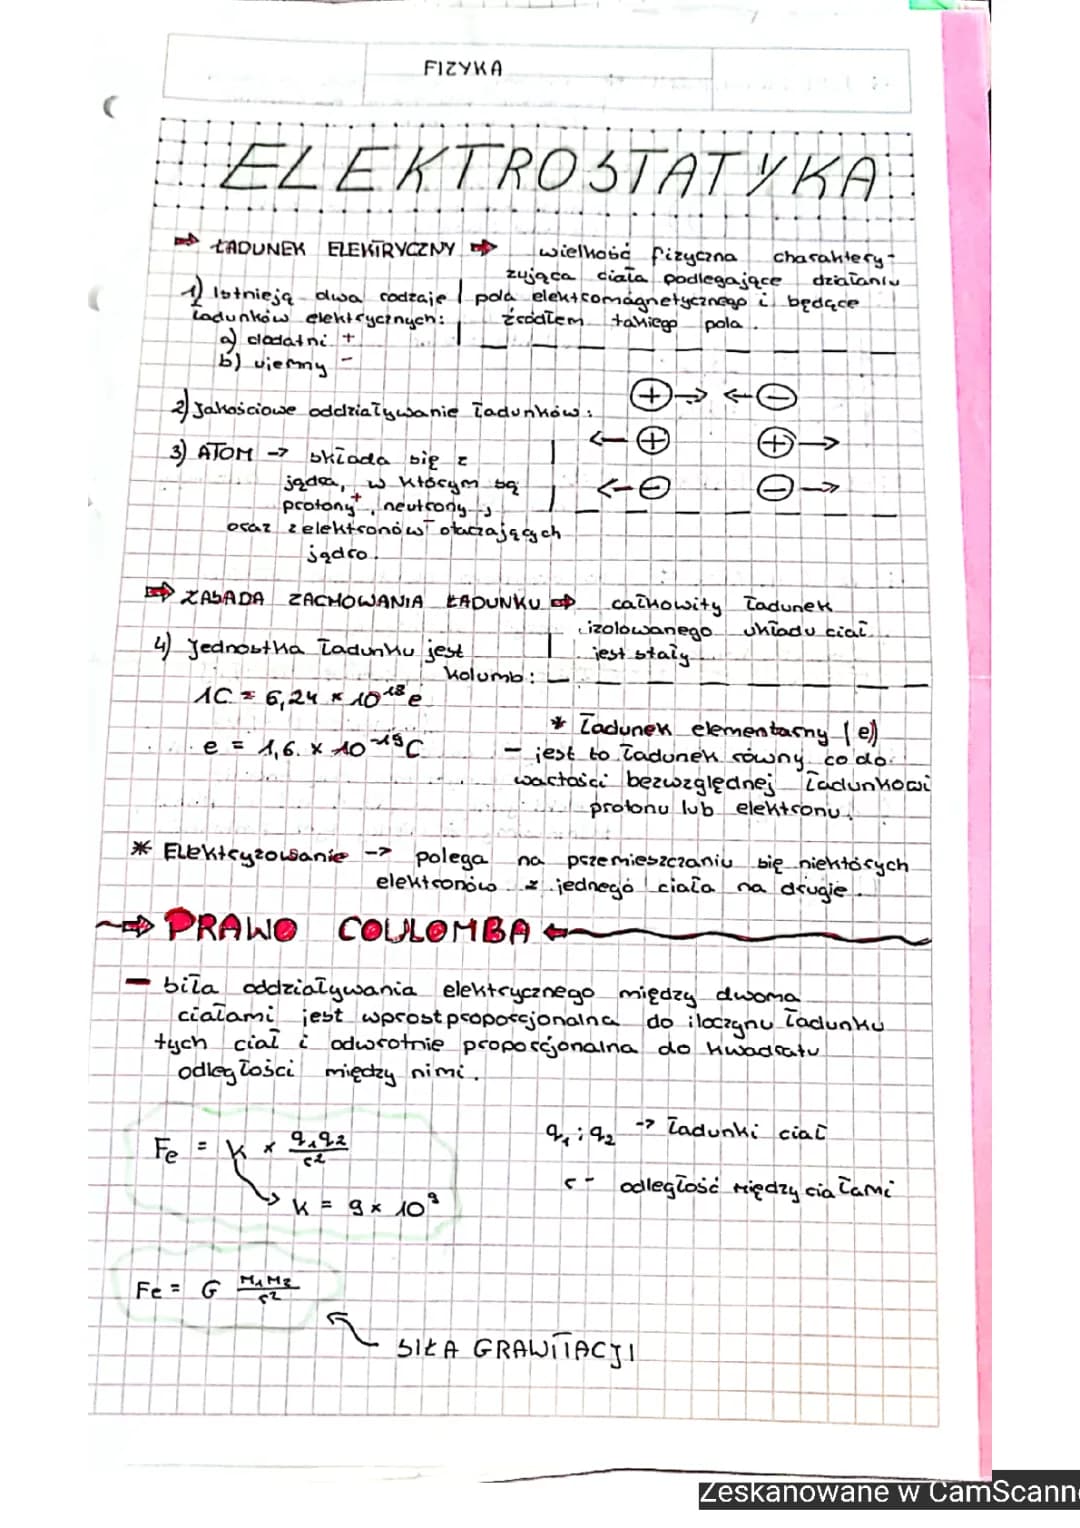 FIZYKA
ELEKTROSTATYKA
⇒ ŁADUNEK ELEKTRYCZNY ⇒ wielkość fizyczna charaktery-
zująca ciała podlegające działaniu
pola elektromagnetycznego i będące
źródłem takiego pola.
1) Istnieją dwa rodzaje
ładunków elektrycznych:
a) dodatni +
b) ujemny -
2) Jakościowe oddziaływanie ładunków:
+→ ←-
←+ +→
←- -→
3) ATOM -> składa się z
jądra, w którym są
protony+, neutrony,
oraz z elektronów- otaczających
jądro.
⇒ ZASADA ZACHOWANIA ŁADUNKU ⇒ całkowity ładunek
izolowanego układu ciał
jest stały
4) Jednostka ładunku jest
kolumb:
1C = 6,24 × 10^18 e
e = 1,6 × 10^-19 C
* Ładunek elementarny (e)
- jest to ładunek równy co do
wartości bezwzględnej ładunkowi
protonu lub elektronu.
* Elektryzowanie -> polega na przemieszczaniu się niektórych
elektronów z jednego ciała na drugie.
⇒ PRAWO COULOMBA ⇐
- siła oddziaływania elektrycznego między dwoma
ciałami jest wprostproporcjonalna do iloczynu ładunku
tych ciał i odwrotnie proporcjonalna do kwadratu
odległości między nimi.
Fe = k × q₁q₂/r²
k = 9 × 10⁹
q₁ i q₂ -> ładunki ciał
r - odległość między ciałami
Fe = G M₁M₂/r²
SIŁA GRAWITACJI
Zeskanowane w CamScann